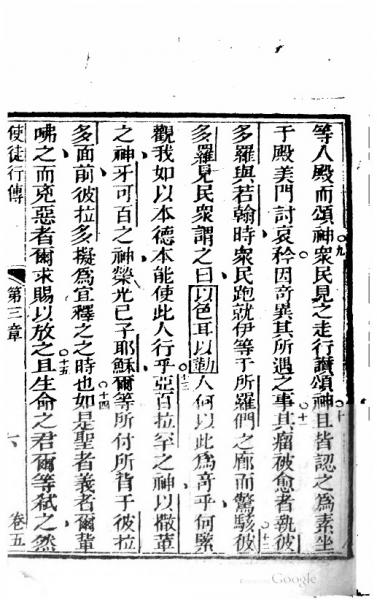 等入殿而頌神○九衆民見之走行讚頌神○十且皆認之為素坐
于殿美門討哀矜因奇異其所遇之事○十一其痛被愈者執彼
多羅與若翰時衆民跑就伊等于所羅們之廊而驚駭○十二彼
多羅見民衆謂之曰以色耳以勒人何以此為奇乎何緊
觀我如以本德本能使此人行乎○十三亞百拉至之神以撒葷
之神牙可百之神榮光己子耶穌爾等所付所背于彼拉
多面前彼拉多擬為宜釋之之時也○十四如是聖者義者爾輩
咈之而兇惡者爾求賜以放之○十五且生命之君爾等弒之然
使徒行傳 第三章 六 卷五
Google